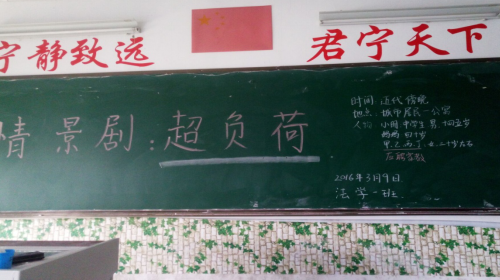 宁静致远
君宁天下
情景剧:超负荷
时间:近代 傍晚
地点:城市居民一公寓
人物:小周 中学生 男 十四五岁
妈妈 四十岁
甲.乙.丙.丁:女.二十岁左右
2016年3月9日
法学一班